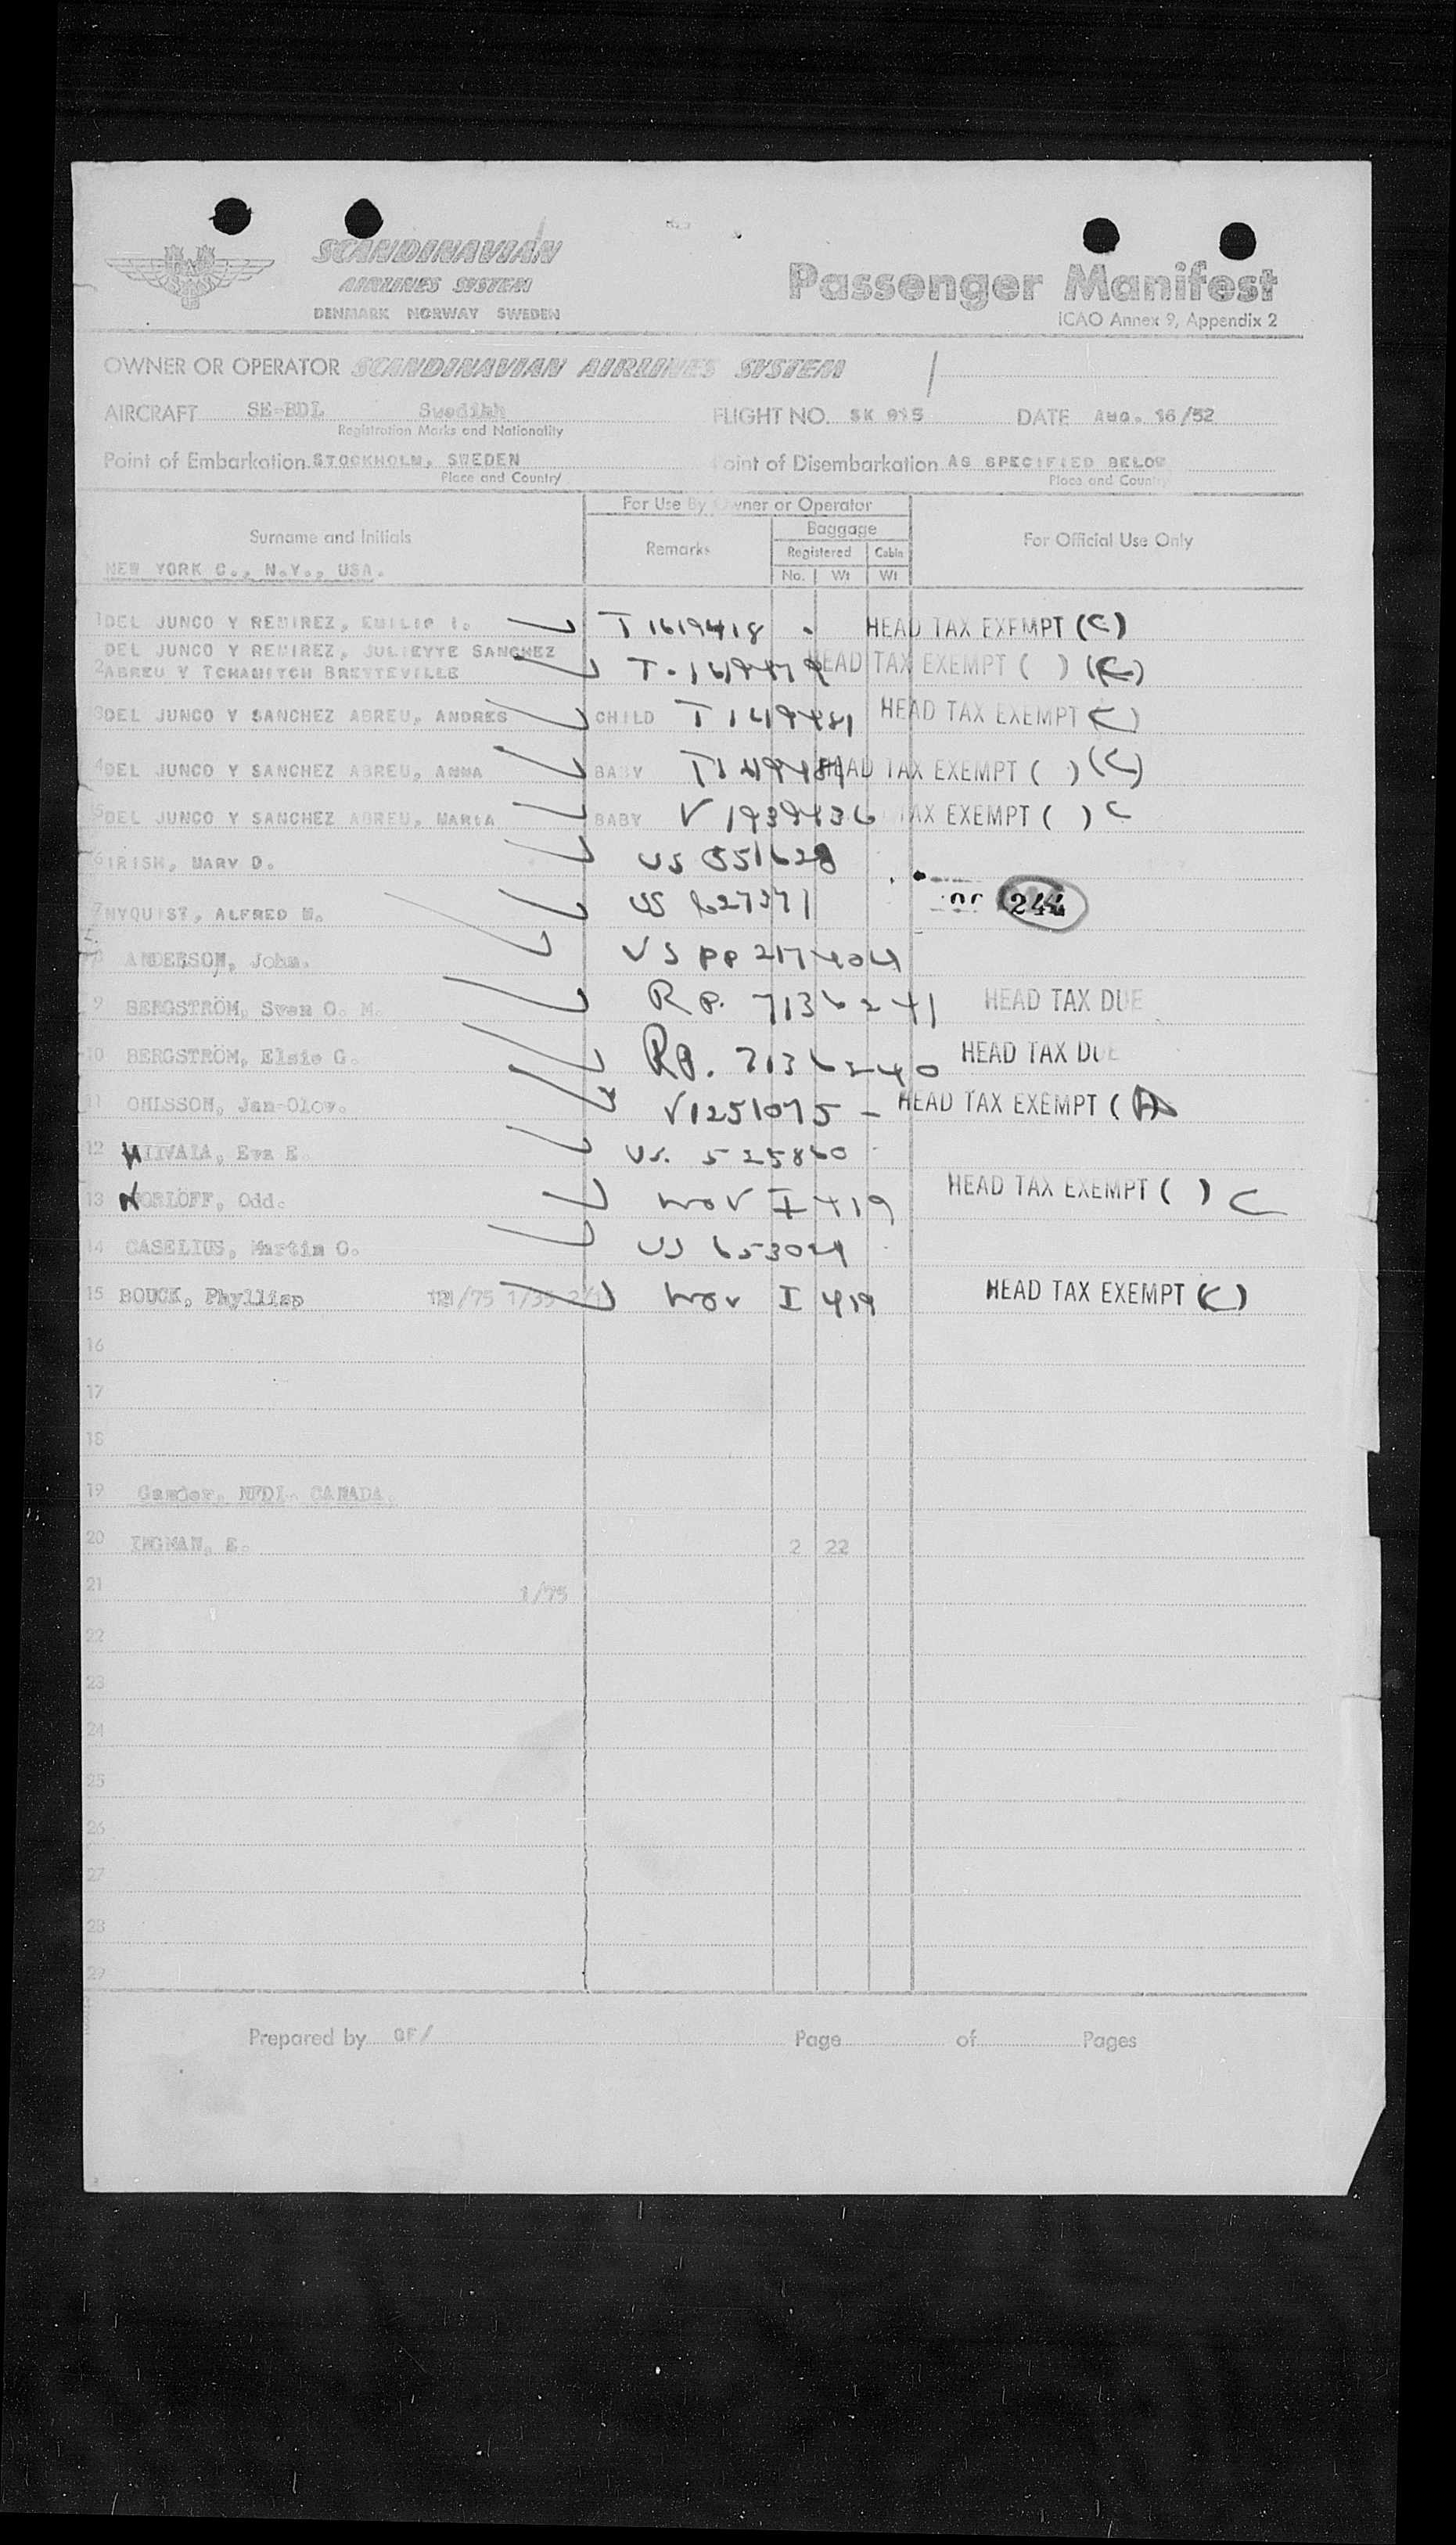 SCANDINAVIAN
AIRLINES SYSTEM
DENMARK NORWAY SWEDEN
Passenger Manifest
ICAO Annex 9, Appendix 2
OWNER OR OPERATOR SCANDINAVIAN AIRLINES SYSTEM
AIRCRAFT SE-BDL Swedihh FLIGHT NO. SK 915 DATE AUG. 16/52
Registration Marks and Nationality
Point of Embarkation STOCKHOLM, SWEDEN Point of Disembarkation AS SPECIFIED BELOW
Place and Country Place and Country
For Use By Owner or Operator
Surname and Initials Remarks Baggage For Official Use Only
Registered Cabin
No. Wt Wt
NEW YORK C., N.Y., USA.
1 DEL JUNCO Y REMIREZ, EMILIO I. T 1619418 HEAD TAX EXEMPT (C)
DEL JUNCO Y REMIREZ, JULIEYTE SANCHEZ
2 ABREU Y TCHAMITCH BREVTEVILLE HEAD TAX EXEMPT ( ) (C)
3 DEL JUNCO Y SANCHEZ ABREU, ANDRES CHILD HEAD TAX EXEMPT C)
4 DEL JUNCO Y SANCHEZ ABREU, ANNA BABY HEAD TAX EXEMPT ( ) (C)
5 DEL JUNCO Y SANCHEZ ABREU, MARIA BABY V 1939436 TAX EXEMPT ( ) C
6 IRISH, MARY D. US 551628
7 NYQUIST, ALFRED W. US 627371 244
8 ANDERSON, John. US PP 217404
9 BERGSTRÖM, Sven O. M. Rp. 7136241 HEAD TAX DUE
10 BERGSTRÖM, Elsie G. Rp. 7136240 HEAD TAX DUE
11 OHLSSON, Jan-Olov. V1251075 - HEAD TAX EXEMPT (A)
12 Eva E. US. 525860
13 Odd. HEAD TAX EXEMPT ( ) C
14 CASELIUS, Martin O. US 653024
15 BOUCK, Phyllisp I 419 HEAD TAX EXEMPT (C)
16
17
18
19 Gander, NFDL. CANADA.
20 INGMAN, E. 2 22
21 1/75
22
23
24
25
26
27
28
29
Prepared by GF/ Page of Pages